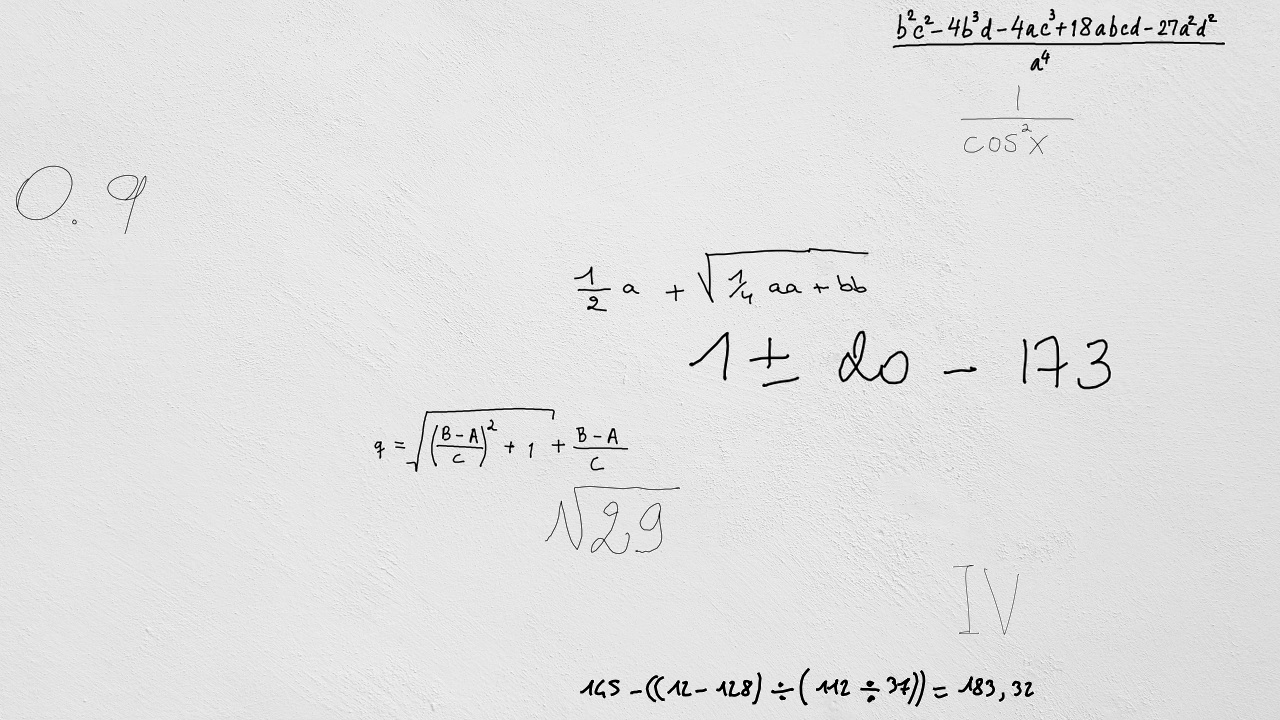 \frac{b^2c^2-4b^3d-4ac^3+18abcd-27a^2d^2}{a^4}
\frac{1}{\cos^2 x}
0.9
\frac{1}{2}a+\sqrt{\frac{1}{4}aa+bb}
1 ± 20 - 173
q=\sqrt{\left(\frac{B-A}{C}\right)^2+1}+\frac{B-A}{C}
\sqrt{29}
IV
145-((12-128)÷(112÷37))=183,32